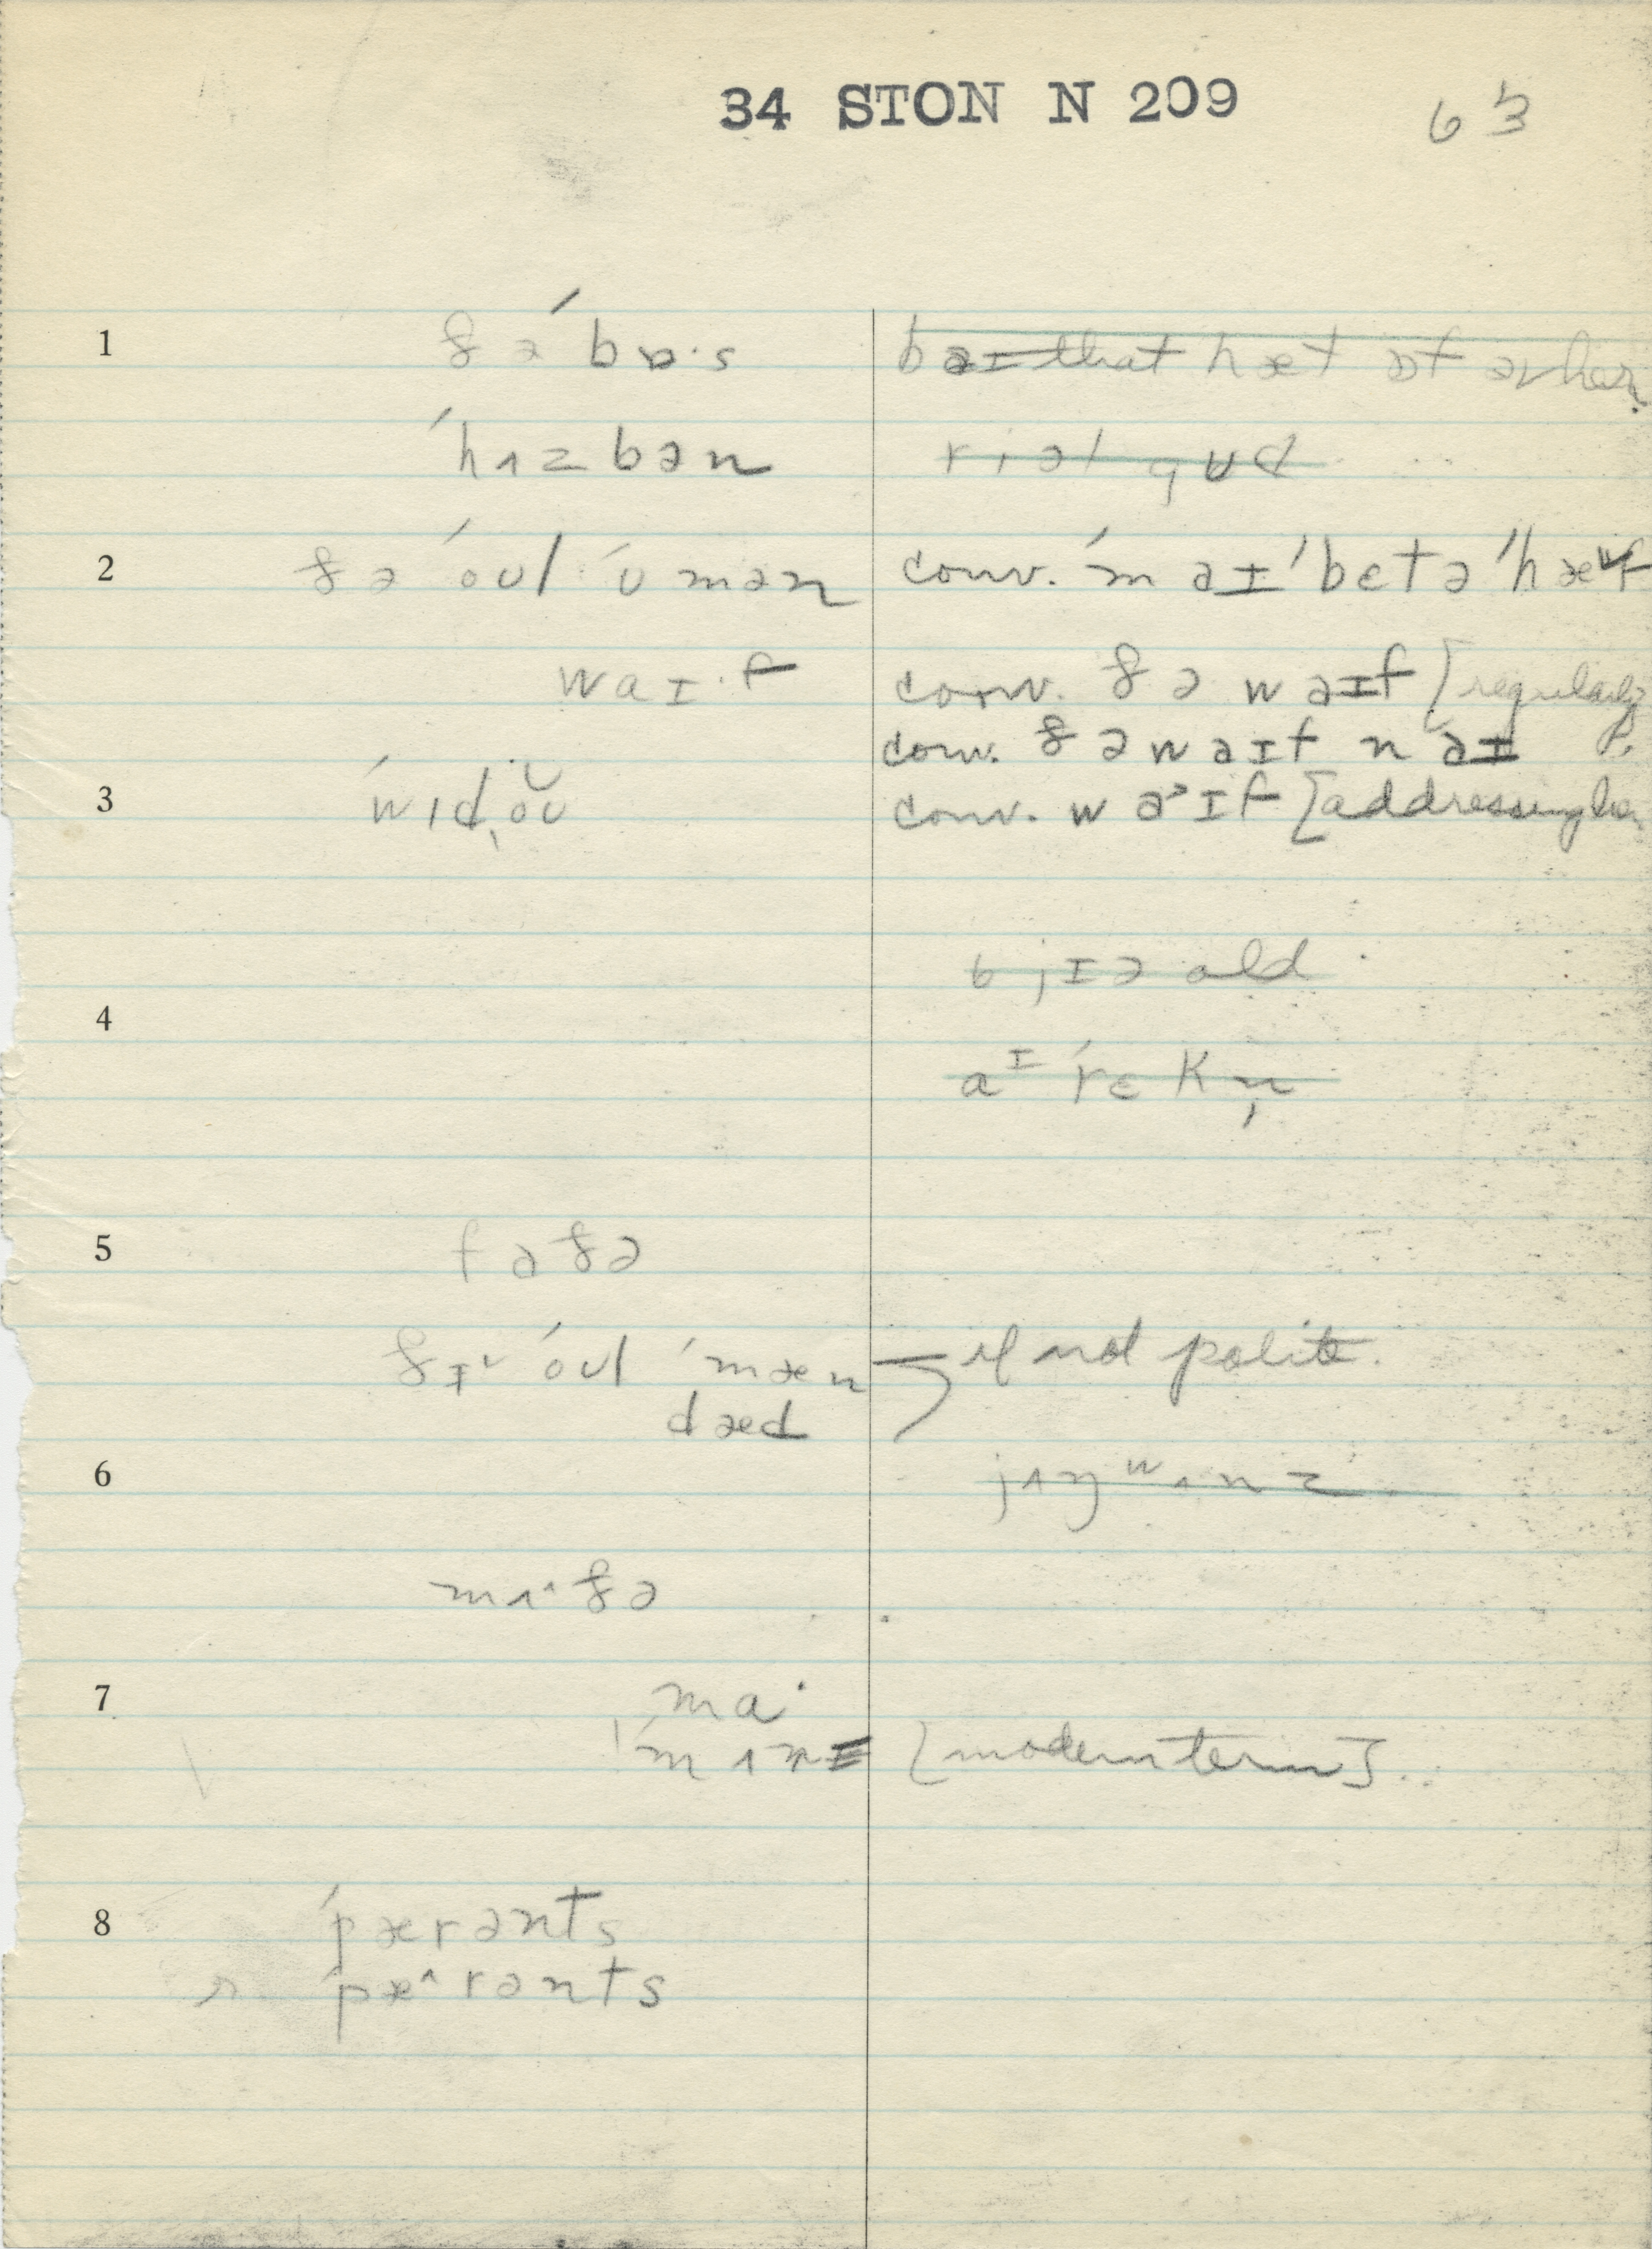 34 STON N 209 63
1 ðə ˈbɒ·s bəɪ that hæt ɒf əv her.
ˈhʌzbən riəl gʊd
2 ðə ˈoʊl ˈʊmən conv. ˈm əɪ ˈbɛtə ˈhæf
waɪ·f conv. ðə wəɪf [regularly
conv. ðə wəɪf n əɪ
3 ˈwɪdˌoʊ conv. w əɪf [addressing her
b jɪə old
4
aɪ ˈrɛkn̩
5 fɑðə
ðɪ ˈoʊl ˈmæn if not polite.
dæd
6 jʌŋ wʌnz
mʌ^ðə
7 ma·
ˈmʌmɪ [modern term]
8 ˈpærənts
r. ˈpæ^rənts